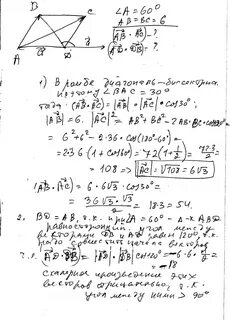 B
C
A
D
∠A = 60°
AB = BC = 6
|AB · AC| - ?
|AD · DB| - ?
1) В ромбе диагональ - биссектриса
поэтому ∠BAC = 30°
тогда (AB · AC) = |AB| · |AC| · cos30°;
|AB| = 6. |AC|² = AB² + BC² - 2AB·BC·cos
= 6² + 6² - 2·36·cos(180°-60°) =
= 2·36(1 + cos60°) = 72(1 + 1/2) = 72·3/2 =
= 108 ⇒ |AC| = √108 = 6√3
(AB · AC) = 6·6√3 · cos30° =
= 36√3 · √3 / 2 = 18·3 = 54.
2. BD = AB, т.к. при ∠A = 60° - Δ-к ABD
равносторонний. угол между
векторами DB и AD равен 120°, т.к.
надо совместить начала векторов
AD · DB = |AD| · |DB| cos120° = -6·6· 1/2 =
= -18
скалярное произведение этих
векторов отрицательно, т.к.
угол между ними > 90°